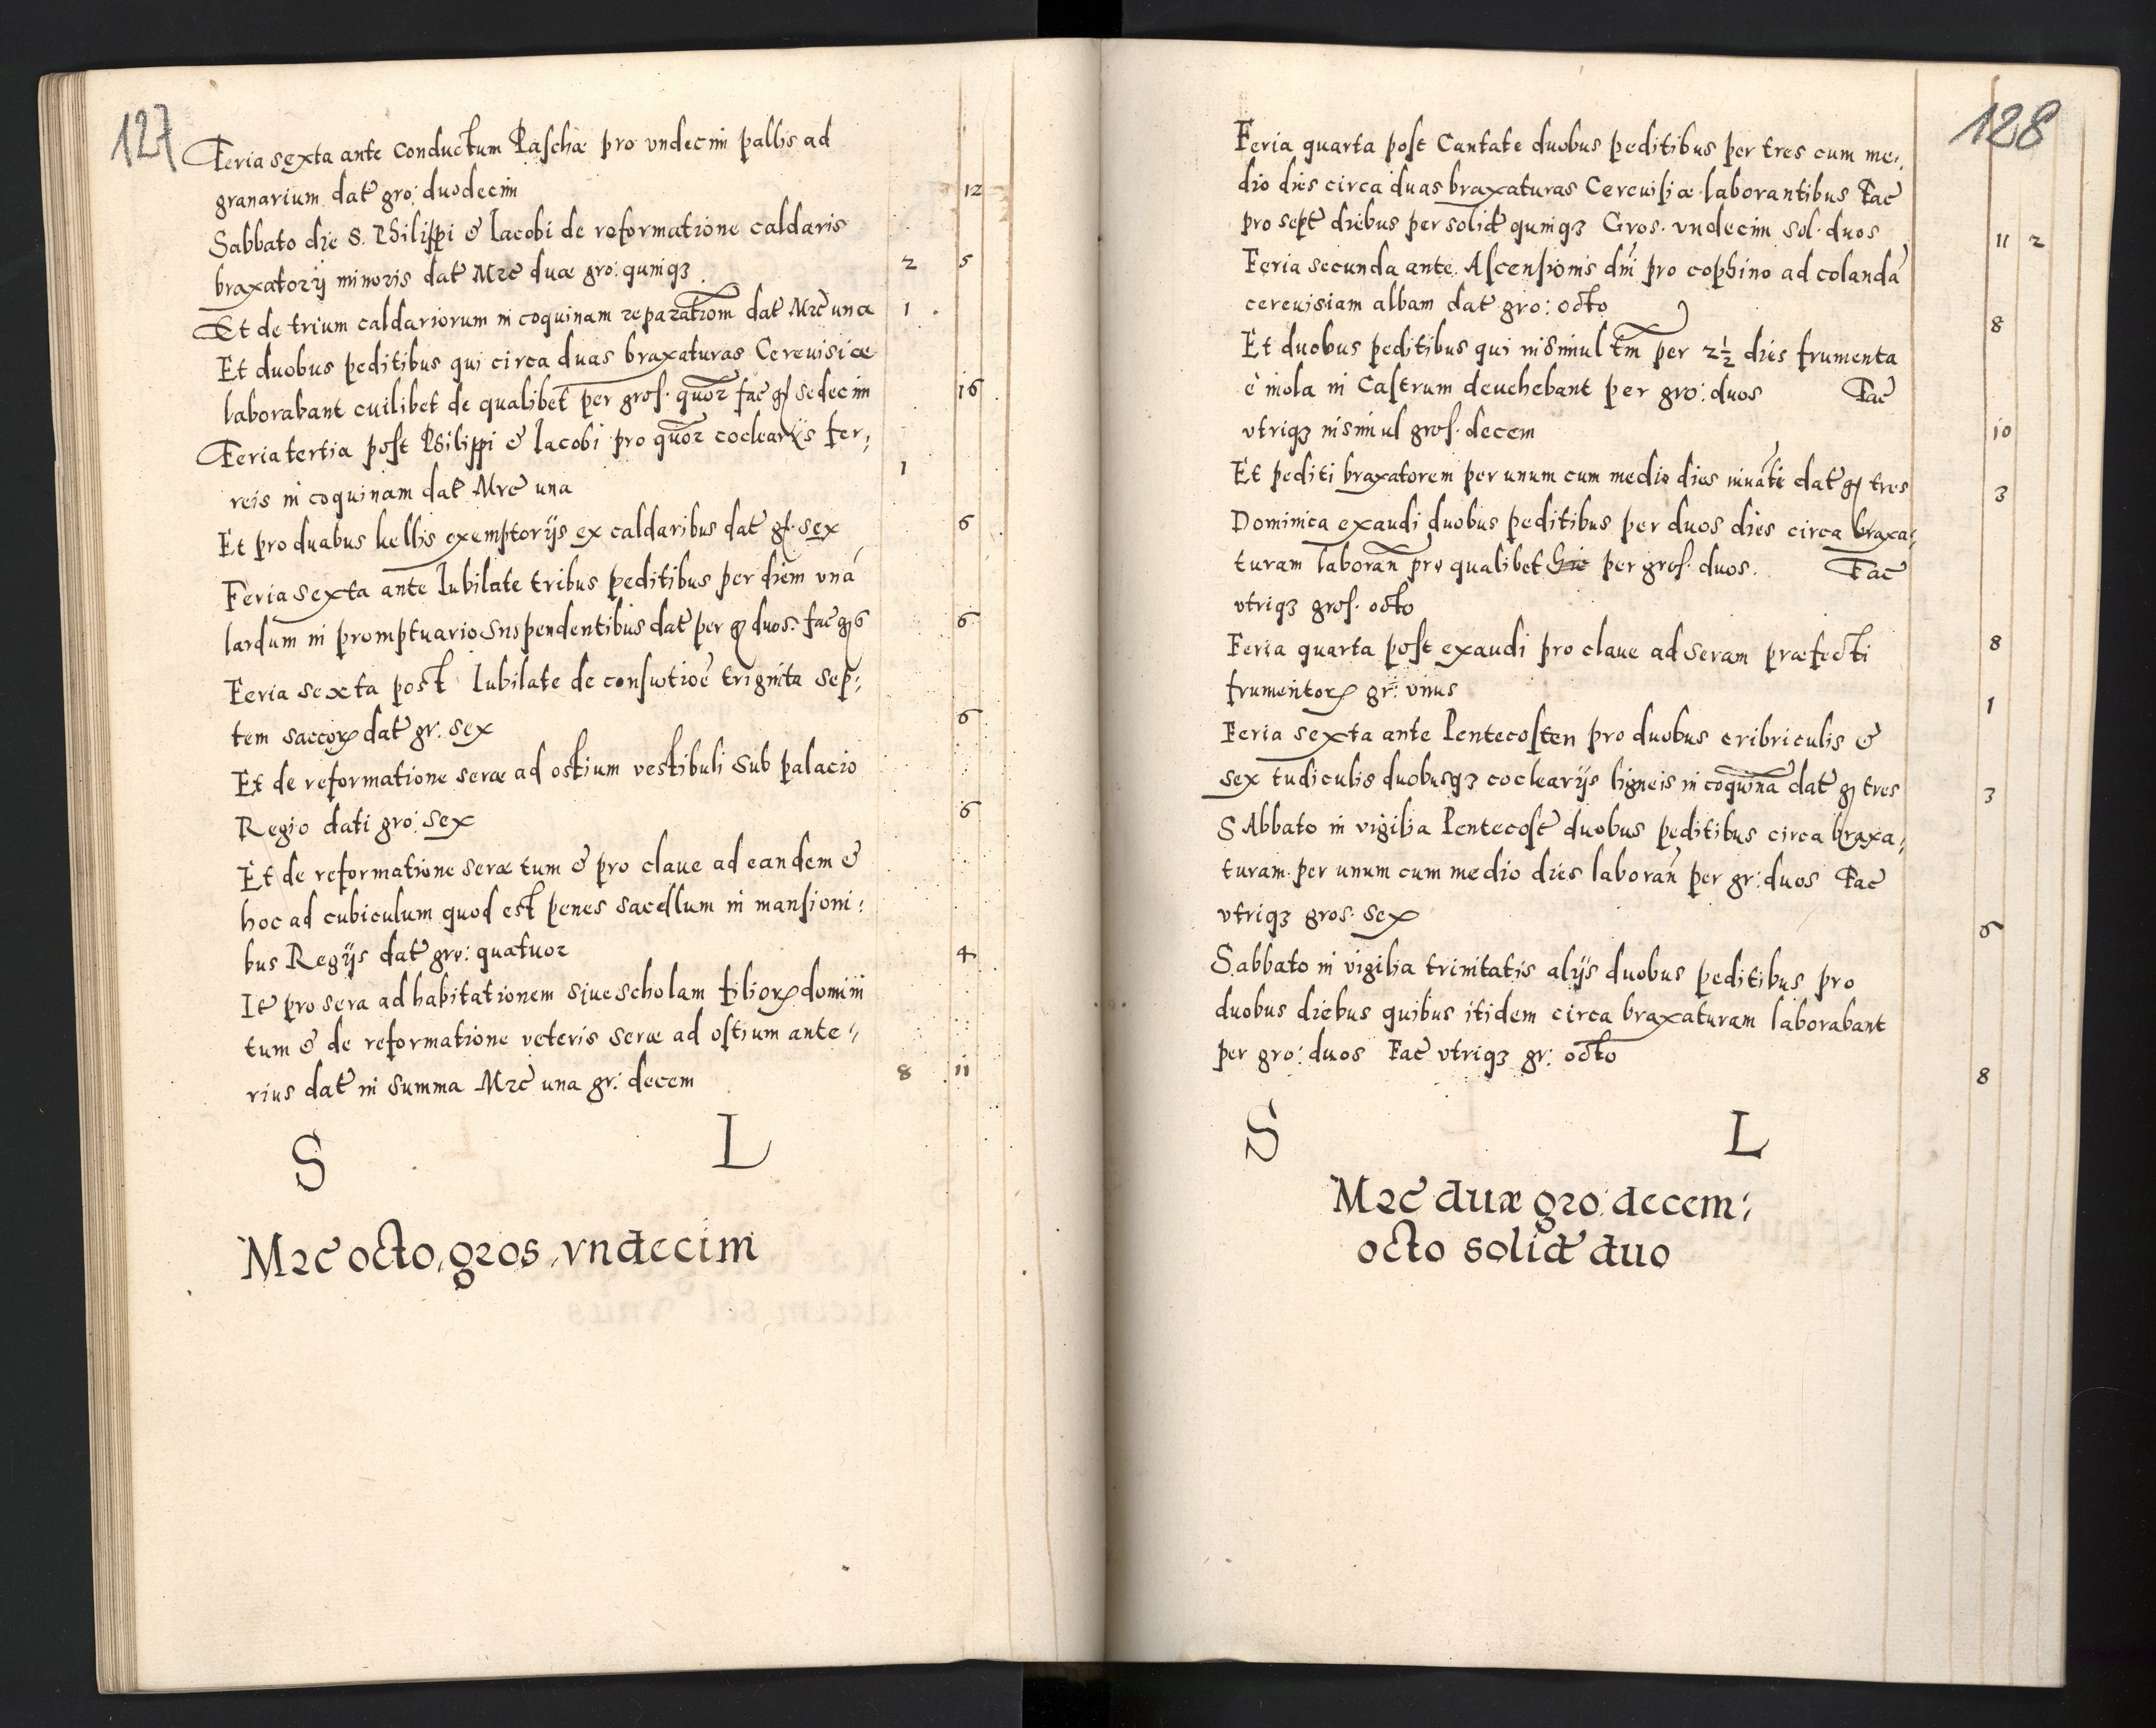 127
Feria sexta ante Conductum Paschæ pro vndecim pallis ad
granarium dat̃ gro: duodecim 12
Sabbato die S. Philippi & Iacobi de reformatione caldaris
braxatorij minoris dat̃ Mrc̃ duæ gro: quinqȝ 2 5
Et de trium caldariorum in coquinam reparatiom̃ dat̃ Mrc̃ una 1
Et duobus peditibus qui circa duas braxaturas Cereuisiæ
laborabant cuilibet de qualibet per gros. quor̃ fac̃ gɼ sedecim 16
Feria tertia post Philippi & Iacobi pro quor̃ coclearijs fer:
reis in coquinam dat̃ Mrc̃ una 1
Et pro duabus kellis exemptorijs ex caldaribus dat̃ gɼ. sex 6
Feria sexta ante Iubilate tribus peditibus per diem vnā
lardum in promptuario suspendentibus dat̃ per gɼ duos. fac̃ gɼ 6 6
Feria sexta post Iubilate de consutioē triginta sep:
tem saccorꝝ dat̃ gr. sex 6
Et de reformatione seræ ad ostium vestibuli sub palacio
Regio dati gro: sex 6
Et de reformatione seræ tum & pro claue ad eandem &
hoc ad cubiculum quod est penes sacellum in mansioni:
bus Regijs dat̃ gro: quatuor 4
It̃ pro sera ad habitationem siue scholam filiorꝝ domini
tum & de reformatione veteris seræ ad ostium ante:
rius dat̃ in summa Mrc̃ una gr: decem 8 11
S L
Mrc̃ octo, gros, vndecim
128
Feria quarta post Cantate duobus peditibus per tres cum me:
dio dies circa duas braxaturas Cereuisiæ laborantibus Fac̃
pro sept̃ diebus per solid̃ quinqȝ Gros. vndecim sol. duos 11 2
Feria secunda ante Ascensionis dñi pro cophino ad colandā
cereuisiam albam dat̃ gro: octo 8
Et duobus peditibus qui insimul tm̃ per 2½ dies frumenta
è mola in Castrum deuehebant per gro: duos Fac̃
vtriqȝ insimul gros. decem 10
Et pediti braxatorem per unum cum medio dies iuuãti dat̃ gɼ tres 3
Dominica exaudi duobus peditibus per duos dies circa braxa:
turam laborañ pro qualibet die per gros. duos. Fac̃
vtriqȝ gros. octo 8
Feria quarta post exaudi pro claue ad seram præfecti
frumentorꝝ gr: vnus 1
Feria sexta ante Pentecosten pro duobus cribriculis &
sex tudiculis duobusqȝ coclearijs ligneis in coquina dat̃ gɼ tres 3
SAbbato in vigilia Pentecost̃ duobus peditibus circa braxa:
turam per unum cum medio dies laborañ per gr: duos Fac̃
vtriqȝ gros. sex 6
Sabbato in vigilia trinitatis alijs duobus peditibus pro
duobus diebus quibus itidem circa braxaturam laborabant
per gro: duos Fac̃ vtriqȝ gr: octo 8
S L
Mrc̃ duæ gro: decem:
octo solid̃ duo